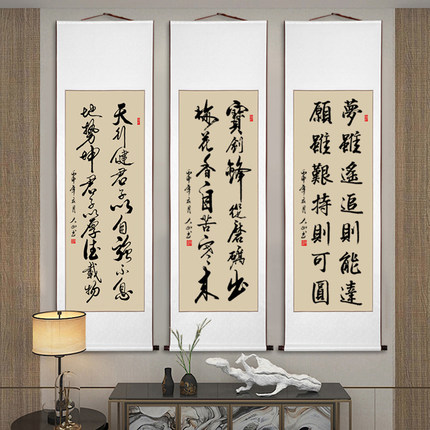 夢雖遙追則能達
願雖艱持則可圓
寶劍鋒從磨礪出
梅花香自苦寒来
天行健君子以自强不息
地勢坤君子以厚德載物